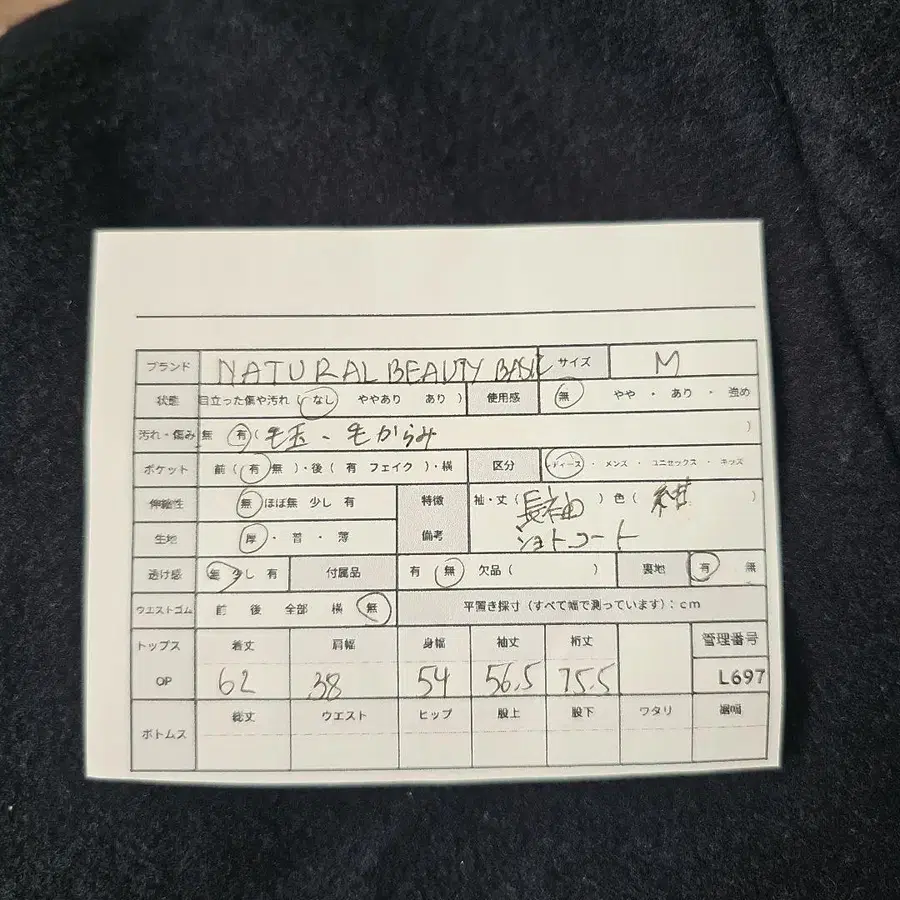 ブランド NATURAL BEAUTY BASIC サイズ M
状態 目立った傷や汚れ ( なし ややあり あり ) 使用感 無 やや ・ あり ・ 強め
汚れ・傷み 無 有 ( 毛玉、毛からみ )
ポケット 前 ( 有 無 )・後 ( 有 フェイク )・横 区分 レディース ・ メンズ ・ ユニセックス ・ キッズ
伸縮性 無 ほぼ無 少し 有 特徴 袖・丈 ( 長袖 ) 色 ( 紺 )
生地 厚 ・ 普 ・ 薄 備考 ショートコート
透け感 無 少し 有 付属品 有 無 欠品 ( ) 裏地 有 無
ウエストゴム 前 後 全部 横 無 平置き採寸 (すべて幅で測っています) : cm
トップス 着丈 肩幅 身幅 袖丈 裄丈 管理番号
OP 62 38 54 56.5 75.5 L697
ボトムス 総丈 ウエスト ヒップ 股上 股下 ワタリ 裾幅